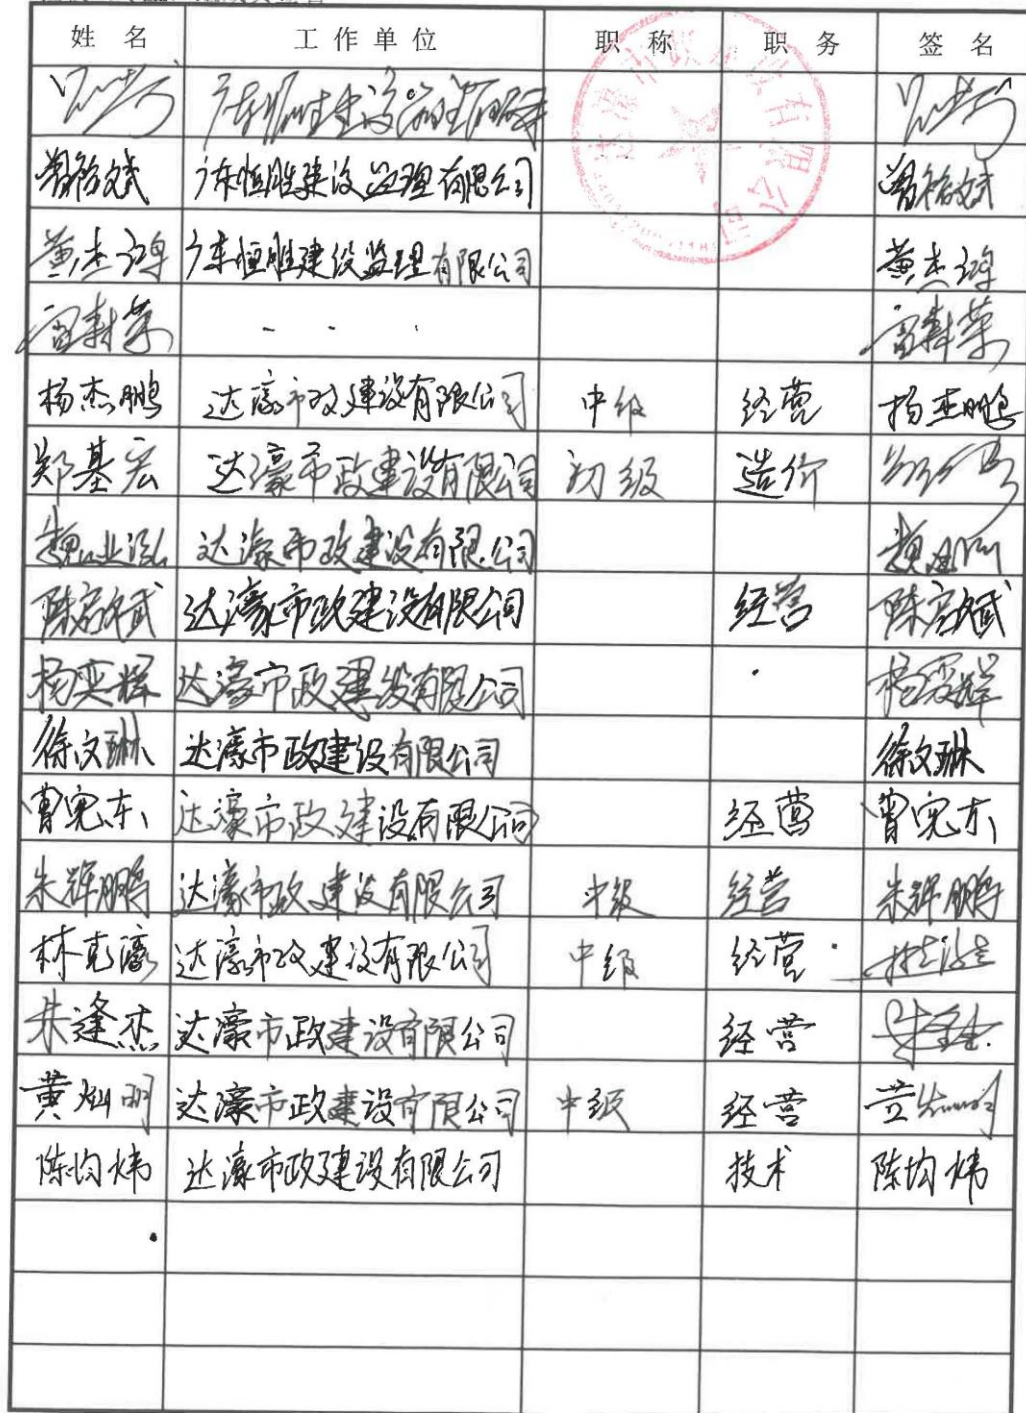 姓 名 工作单位 职 称 职 务 签 名
曾裕斌 广东恒胜建设监理有限公司 曾裕斌
黄杰鸿 广东恒胜建设监理有限公司 黄杰鸿
杨杰鹏 达濠市政建设有限公司 中级 经营 杨杰鹏
郑基宏 达濠市政建设有限公司 初级 造价
魏业泓 达濠市政建设有限公司
陈宏斌 达濠市政建设有限公司 经营 陈宏斌
杨奕辉 达濠市政建设有限公司 杨奕辉
徐文琳 达濠市政建设有限公司 徐文琳
曾宪东 达濠市政建设有限公司 经营 曾宪东
朱辉鹏 达濠市政建设有限公司 中级 经营 朱辉鹏
林克濠 达濠市政建设有限公司 中级 经营
朱逢杰 达濠市政建设有限公司 经营
黄灿明 达濠市政建设有限公司 中级 经营 黄灿明
陈均炜 达濠市政建设有限公司 技术 陈均炜